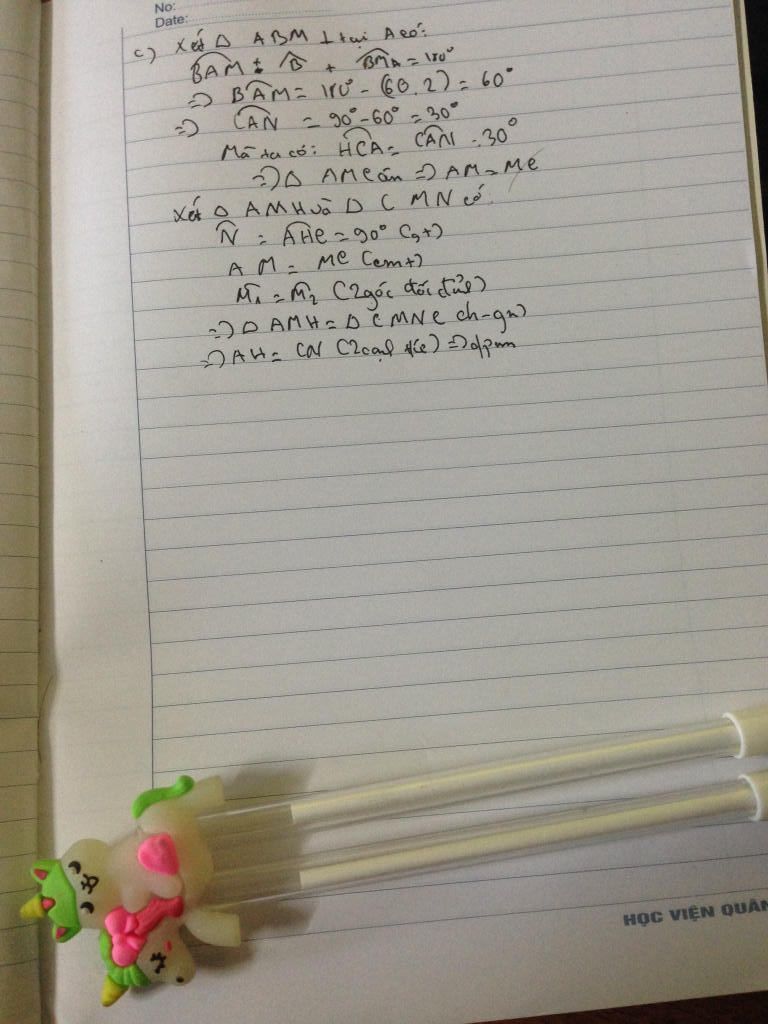 No:
Date:
c) Xét Δ ABM ⊥ tại A có:
BAM + B + BMA = 180°
=> BAM = 180° - (60.2) = 60°
=> CAN = 90° - 60° = 30°
Mà ta có: HCA = CAN = 30°
=> Δ AMC cân => AM = MC
Xét Δ AMH và Δ CMN có
N = AHC = 90° (gt)
AM = MC (cmt)
M1 = M2 (2 góc đối đỉnh)
=> Δ AMH = Δ CMN (ch-gn)
=> AH = CN (2 cạnh) => đpcm
HỌC VIỆN QUÂN